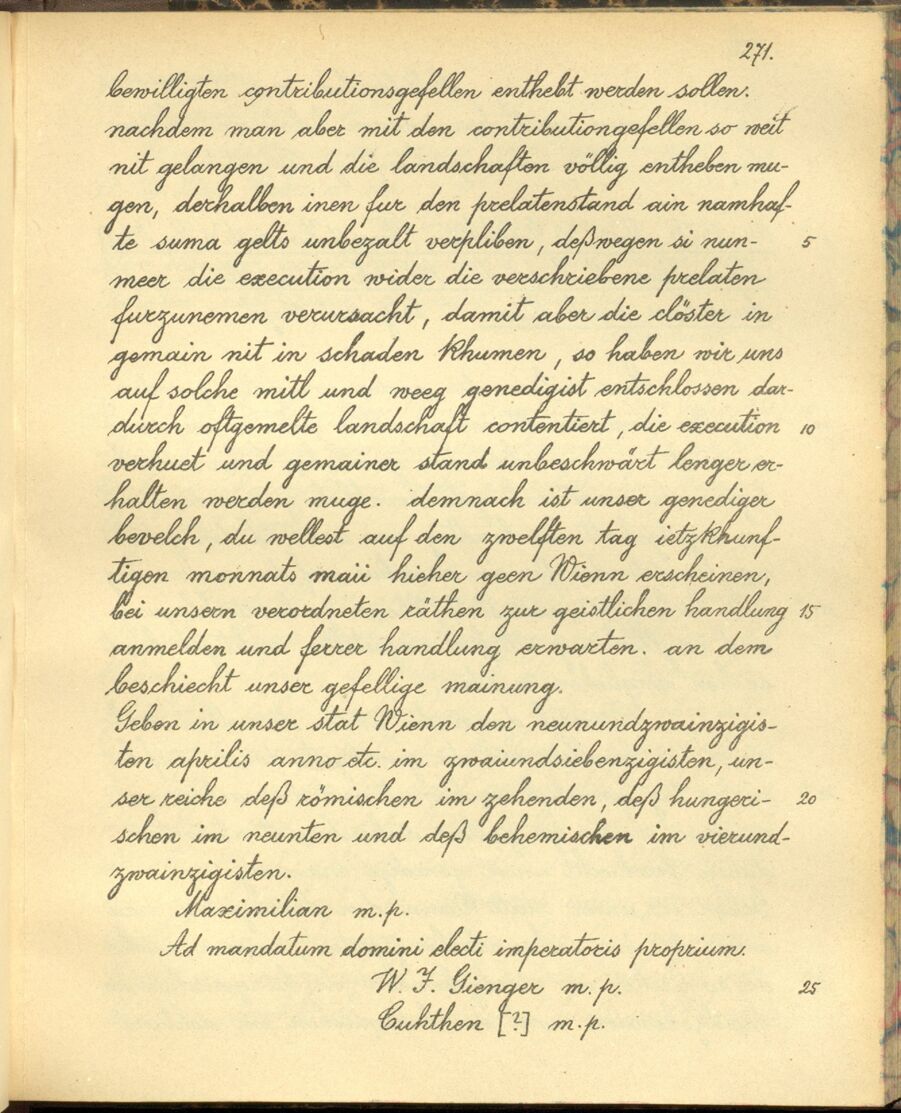 271.
bewilligten contributionsgefellen enthebt werden sollen.
nachdem man aber mit den contributiongefellen so weit
nit gelangen und die landschaften völlig entheben mu-
gen, derhalben inen fur den prelatenstand ain namhaf-
te suma gelts unbezalt verpliben, deßwegen si nun- 5
meer die execution wider die verschriebene prelaten
furzunemen verursacht, damit aber die clöster in
gemain nit in schaden khumen, so haben wir uns
auf solche mitl und weeg genedigist entschlossen dar-
durch oftgemelte landschaft contentiert, die execution 10
verhuet und gemainer stand unbeschwärt lenger er-
halten werden muge. demnach ist unser genediger
bevelch, du wellest auf den zwelften tag ietzkhunf-
tigen monnats maii hieher geen Wienn erscheinen,
bei unsern verordneten räthen zur geistlichen handlung 15
anmelden und ferrer handlung erwarten. an dem
beschiecht unser gefellige mainung.
Geben in unser stat Wienn den neunundzwainzigis-
ten aprilis anno etc. im zwaiundsiebenzigisten, un-
ser reiche deß römischen im zehenden, deß hungeri- 20
schen im neunten und deß behemischen im vierund-
zwainzigisten.
Maximilian m.p.
Ad mandatum domini electi imperatoris proprium.
W. J. Gienger m.p. 25
Cuhthen [?] m.p.